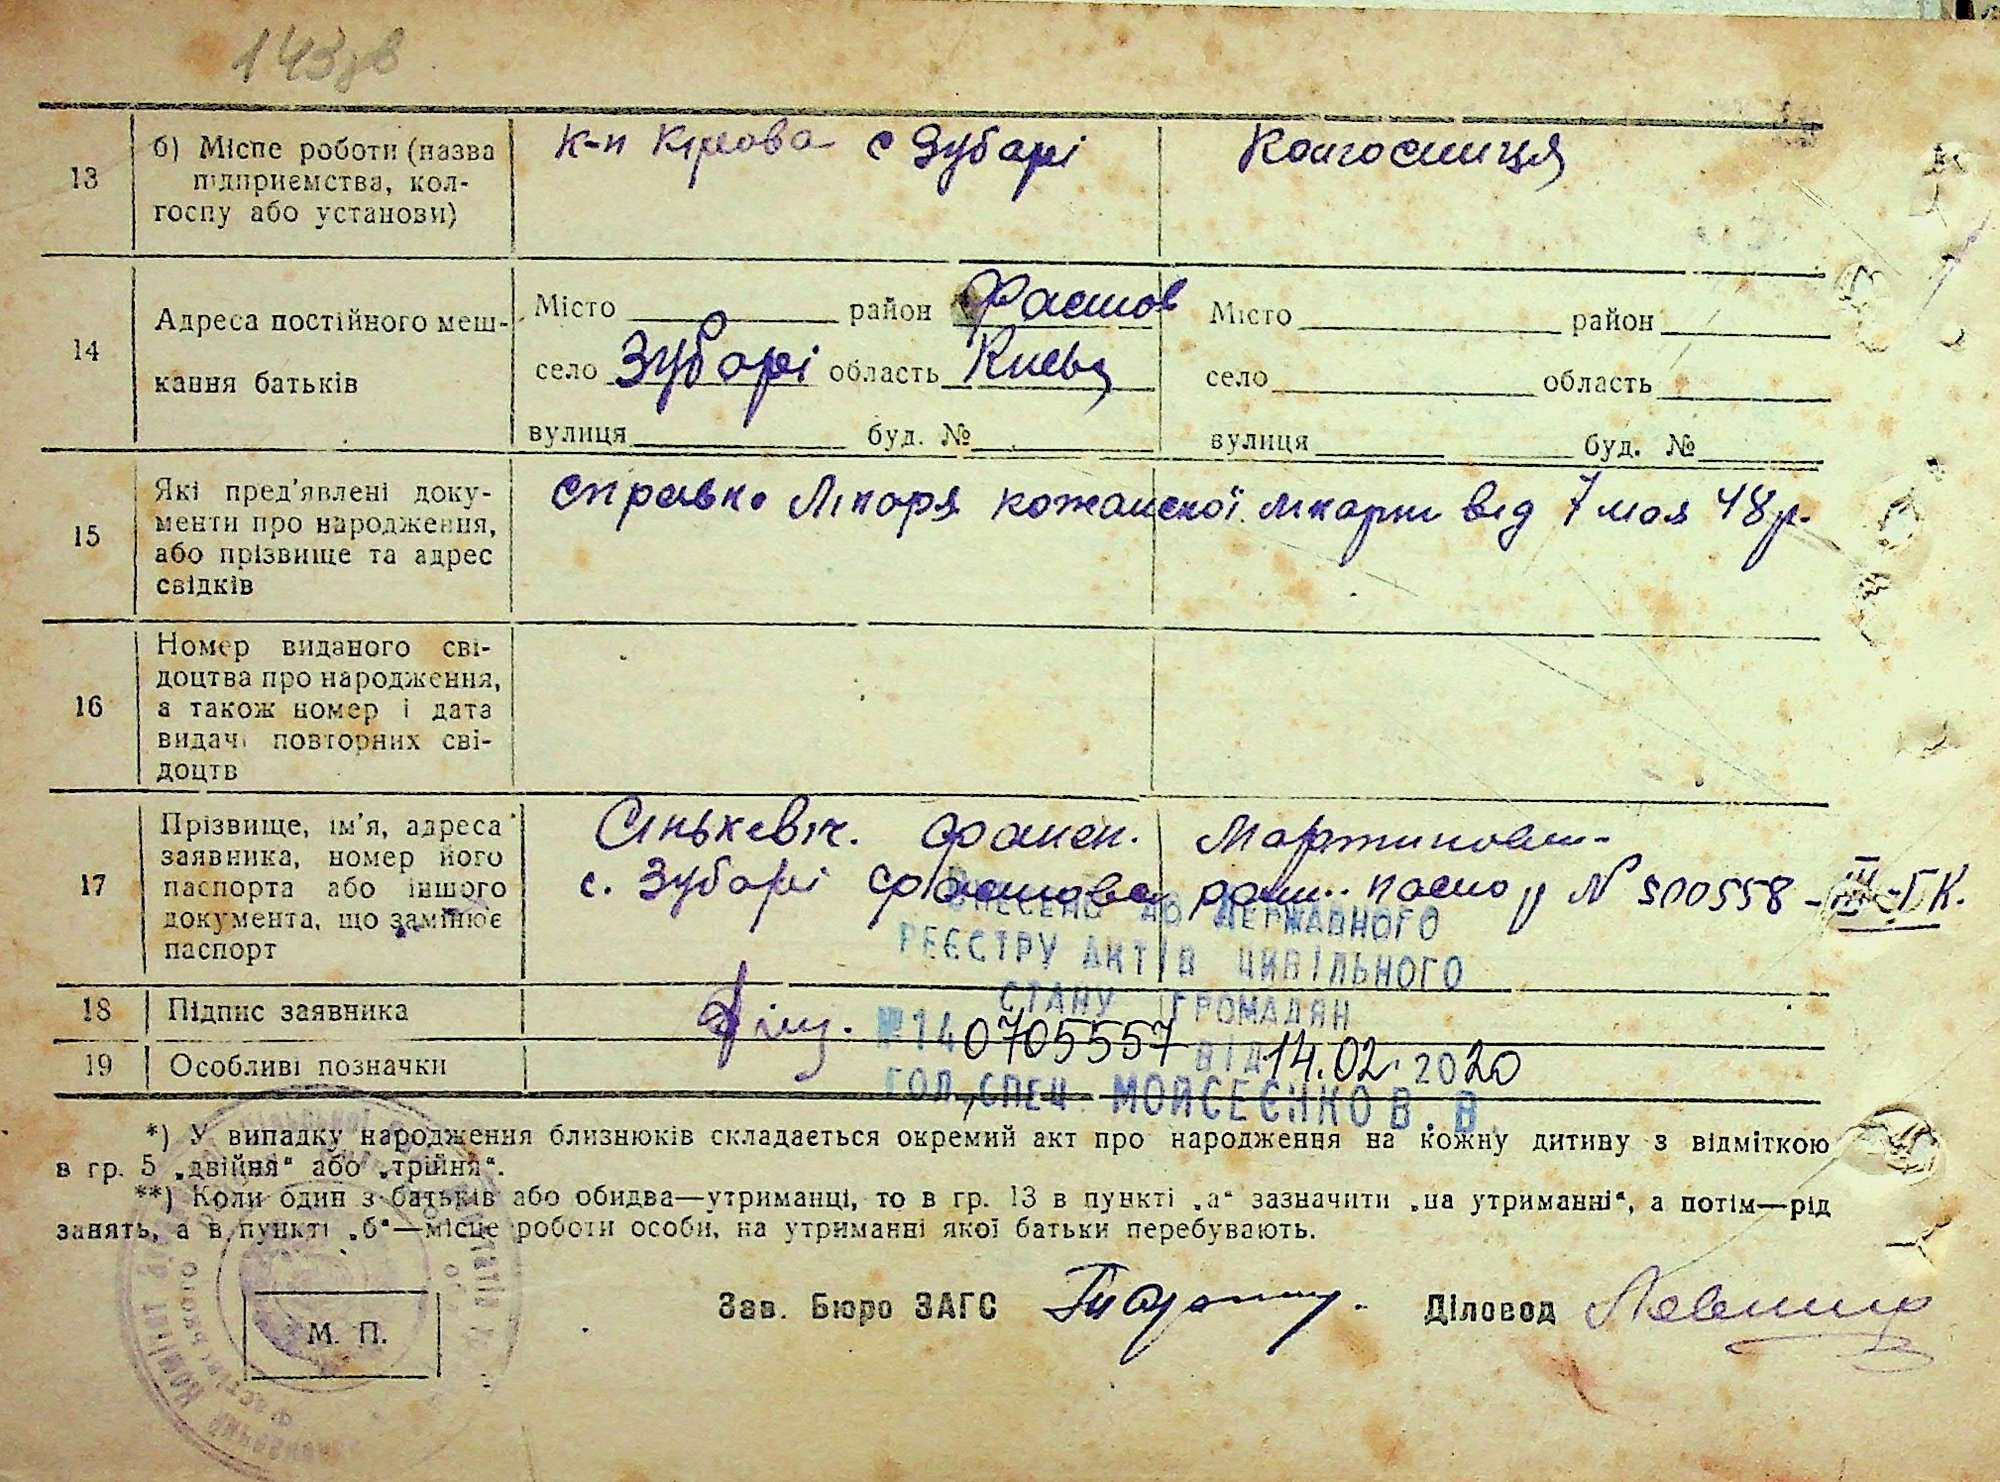 143 зв
13
б) Місце роботи (назва
підприємства, кол-
госпу або установи)
к-п Кірова с Зубарі
Колгоспниця
14
Адреса постійного меш-
кання батьків
Місто район Фастов
село Зубарі область Києвс
вулиця буд. №
Місто район
село область
вулиця буд. №
15
Які пред'явлені доку-
менти про народження,
або прізвище та адрес
свідків
справка лікаря кожанської лікарні від 7 мая 48 р.
16
Номер виданого сві-
доцтва про народження,
а також номер і дата
видачі повторних сві-
доцтв
17
Прізвище, ім'я, адреса
заявника, номер його
паспорта або іншого
документа, що замінює
паспорт
Сінькевіч. Франц. Мартинов
с. Зубарі Фастовск N 500558 - III-БК.
ВНЕСЕНО ДО ДЕРЖАВНОГО
РЕЄСТРУ АКТІВ ЦИВІЛЬНОГО
СТАНУ ГРОМАДЯН
№ 140705557 ВІД 14.02.2020
ГОЛ. СПЕЦ. МОЙСЕЄНКО В. В.
18
Підпис заявника
19
Особливі позначки
*) У випадку народження близнюків складається окремий акт про народження на кожну дитину з відміткою
в гр. 5 „двійня“ або „трійня“.
**) Коли один з батьків або обидва—утриманці, то в гр. 13 в пункті „а“ зазначити „на утриманні“, а потім—рід
занять, а в пункті „б“—місце роботи особи, на утриманні якої батьки перебувають.
М. П.
Зав. Бюро ЗАГС
Діловод